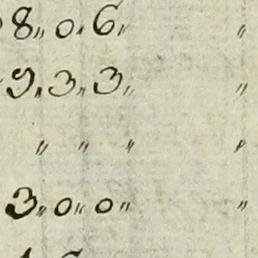 8 〃 0 〃 6 〃 〃
9 〃 3 〃 3 〃 〃
〃 〃 〃 〃
3 〃 0 〃 0 〃 〃